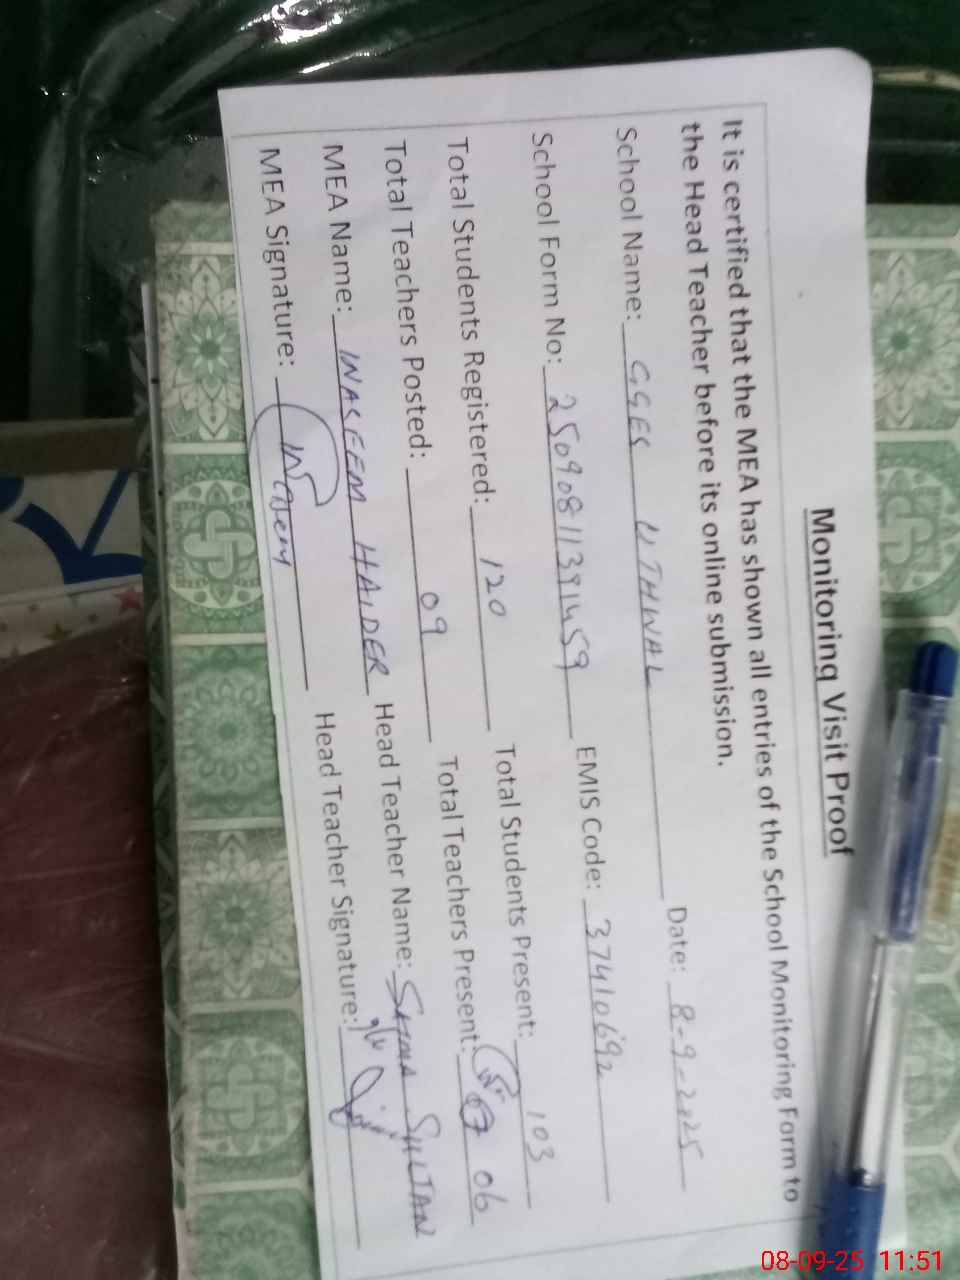 Monitoring Visit Proof
It is certified that the MEA has shown all entries of the School Monitoring Form to
the Head Teacher before its online submission.
School Name: GGES UTHWAL Date: 8-9-2025
School Form No: 25090811391459 EMIS Code: 37410692
Total Students Registered: 120 Total Students Present: 103
Total Teachers Posted: 09 Total Teachers Present: 06
MEA Name: WASEEM HAIDER Head Teacher Name: SULTAN
MEA Signature: Waseem Head Teacher Signature:
08-09-25 11:51